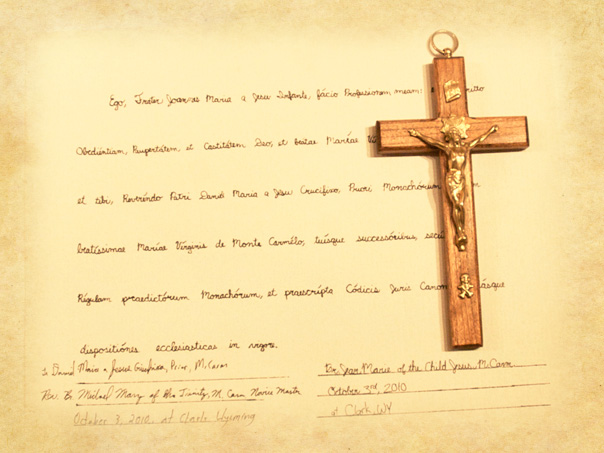 Ego, Frater Joannes Maria a Jesu Infante, fácio Professionem meam:
Obediéntiam, Paupertátem, et Castitátem Deo, et beátae Maríae
et tibi, Reveréndo Patri David Maria a Jesu Crucifixo, Priori Monachórum
beatíssimae Maríae Vírginis de Monte Carmélo, tuísque successóribus,
Régulam praedictórum Monachórum, et praescrípta Códicis Juris
dispositiónes ecclesiasticas in vigore.
Maria a Jesus Prior, M. Carm
Rev. Br. Michael Mary of the Trinity, M. Carm Novice Master
October 3, 2010. at Clark Wyoming
Br. Jean Marie of the Child Jesus, M. Carm
October 3rd, 2010
at Clark, WY